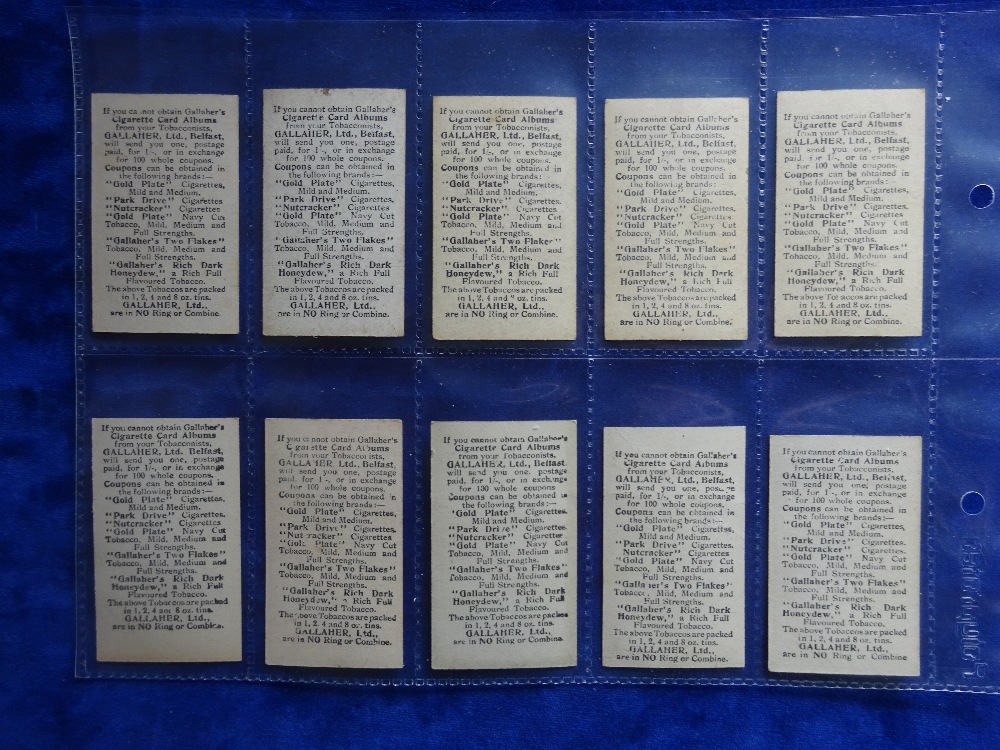 If you cannot obtain Gallaher's
Cigarette Card Albums
from your Tobacconists,
GALLAHER, Ltd., Belfast,
will send you one, postage
paid, for 1/-, or in exchange
for 100 whole coupons.
Coupons can be obtained in
the following brands:—
"Gold Plate" Cigarettes,
Mild and Medium.
"Park Drive" Cigarettes.
"Nutcracker" Cigarettes
"Gold Plate" Navy Cut
Tobacco, Mild, Medium and
Full Strengths.
"Gallaher's Two Flakes"
Tobacco, Mild, Medium and
Full Strengths.
"Gallaher's Rich Dark
Honeydew," a Rich Full
Flavoured Tobacco.
The above Tobaccos are packed
in 1, 2, 4 and 8 oz. tins.
GALLAHER, Ltd.,
are in NO Ring or Combine.
If you cannot obtain Gallaher's
Cigarette Card Albums
from your Tobacconists,
GALLAHER, Ltd., Belfast,
will send you one, postage
paid, for 1/-, or in exchange
for 100 whole coupons.
Coupons can be obtained in
the following brands:—
"Gold Plate" Cigarettes,
Mild and Medium.
"Park Drive" Cigarettes.
"Nutcracker" Cigarettes
"Gold Plate" Navy Cut
Tobacco, Mild, Medium and
Full Strengths.
"Gallaher's Two Flakes"
Tobacco, Mild, Medium and
Full Strengths.
"Gallaher's Rich Dark
Honeydew," a Rich Full
Flavoured Tobacco.
The above Tobaccos are packed
in 1, 2, 4 and 8 oz. tins.
GALLAHER, Ltd.,
are in NO Ring or Combine.
If you cannot obtain Gallaher's
Cigarette Card Albums
from your Tobacconists,
GALLAHER, Ltd., Belfast,
will send you one, postage
paid, for 1/-, or in exchange
for 100 whole coupons.
Coupons can be obtained in
the following brands:—
"Gold Plate" Cigarettes,
Mild and Medium.
"Park Drive" Cigarettes.
"Nutcracker" Cigarettes
"Gold Plate" Navy Cut
Tobacco, Mild, Medium and
Full Strengths.
"Gallaher's Two Flakes"
Tobacco, Mild, Medium and
Full Strengths.
"Gallaher's Rich Dark
Honeydew," a Rich Full
Flavoured Tobacco.
The above Tobaccos are packed
in 1, 2, 4 and 8 oz. tins.
GALLAHER, Ltd.,
are in NO Ring or Combine.
If you cannot obtain Gallaher's
Cigarette Card Albums
from your Tobacconists,
GALLAHER, Ltd., Belfast,
will send you one, postage
paid, for 1/-, or in exchange
for 100 whole coupons.
Coupons can be obtained in
the following brands:—
"Gold Plate" Cigarettes,
Mild and Medium.
"Park Drive" Cigarettes.
"Nutcracker" Cigarettes
"Gold Plate" Navy Cut
Tobacco, Mild, Medium and
Full Strengths.
"Gallaher's Two Flakes"
Tobacco, Mild, Medium and
Full Strengths.
"Gallaher's Rich Dark
Honeydew," a Rich Full
Flavoured Tobacco.
The above Tobaccos are packed
in 1, 2, 4 and 8 oz. tins.
GALLAHER, Ltd.,
are in NO Ring or Combine.
If you cannot obtain Gallaher's
Cigarette Card Albums
from your Tobacconists,
GALLAHER, Ltd., Belfast,
will send you one, postage
paid, for 1/-, or in exchange
for 100 whole coupons.
Coupons can be obtained in
the following brands:—
"Gold Plate" Cigarettes,
Mild and Medium.
"Park Drive" Cigarettes.
"Nutcracker" Cigarettes.
"Gold Plate" Navy Cut
Tobacco, Mild, Medium and
Full Strengths.
"Gallaher's Two Flakes"
Tobacco, Mild, Medium and
Full Strengths.
"Gallaher's Rich Dark
Honeydew," a Rich Full
Flavoured Tobacco.
The above Tobaccos are packed
in 1, 2, 4 and 8 oz. tins.
GALLAHER, Ltd.,
are in NO Ring or Combine.
If you cannot obtain Gallaher's
Cigarette Card Albums
from your Tobacconists,
GALLAHER, Ltd., Belfast,
will send you one, postage
paid, for 1/-, or in exchange
for 100 whole coupons.
Coupons can be obtained in
the following brands:—
"Gold Plate" Cigarettes,
Mild and Medium.
"Park Drive" Cigarettes.
"Nutcracker" Cigarettes
"Gold Plate" Navy Cut
Tobacco, Mild, Medium and
Full Strengths.
"Gallaher's Two Flakes"
Tobacco, Mild, Medium and
Full Strengths.
"Gallaher's Rich Dark
Honeydew," a Rich Full
Flavoured Tobacco.
The above Tobaccos are packed
in 1, 2, 4 and 8 oz. tins.
GALLAHER, Ltd.,
are in NO Ring or Combine.
If you cannot obtain Gallaher's
Cigarette Card Albums
from your Tobacconists,
GALLAHER, Ltd., Belfast,
will send you one, postage
paid, for 1/-, or in exchange
for 100 whole coupons.
Coupons can be obtained in
the following brands:—
"Gold Plate" Cigarettes,
Mild and Medium.
"Park Drive" Cigarettes.
"Nutcracker" Cigarettes.
"Gold Plate" Navy Cut
Tobacco, Mild, Medium and
Full Strengths.
"Gallaher's Two Flakes"
Tobacco, Mild, Medium and
Full Strengths.
"Gallaher's Rich Dark
Honeydew," a Rich Full
Flavoured Tobacco.
The above Tobaccos are packed
in 1, 2, 4 and 8 oz. tins.
GALLAHER, Ltd.,
are in NO Ring or Combine.
If you cannot obtain Gallaher's
Cigarette Card Albums
from your Tobacconists,
GALLAHER, Ltd., Belfast,
will send you one, postage
paid, for 1/-, or in exchange
for 100 whole coupons
Coupons can be obtained in
the following brands:—
"Gold Plate" Cigarettes,
Mild and Medium.
"Park Drive" Cigarettes.
"Nutcracker" Cigarettes.
"Gold Plate" Navy Cut
Tobacco, Mild, Medium and
Full Strengths.
"Gallaher's Two Flakes"
Tobacco, Mild, Medium and
Full Strengths.
"Gallaher's Rich Dark
Honeydew," a Rich Full
Flavoured Tobacco.
The above Tobaccos are packed
in 1, 2, 4 and 8 oz. tins.
GALLAHER, Ltd.,
are in NO Ring or Combine.
If you cannot obtain Gallaher's
Cigarette Card Albums
from your Tobacconists,
GALLAHER, Ltd., Belfast,
will send you one, postage
paid, for 1/-, or in exchange
for 100 whole coupons.
Coupons can be obtained in
the following brands:—
"Gold Plate" Cigarettes,
Mild and Medium.
"Park Drive" Cigarettes.
Nutcracker" Cigarettes.
"Gold Plate" Navy Cut
Tobacco, Mild, Medium and
Full Strengths.
"Gallaher's Two Flakes"
Tobacco, Mild, Medium and
Full Strengths.
"Gallaher's Rich Dark
Honeydew," a Rich Full
Flavoured Tobacco.
The above Tobaccos are packed
in 1, 2, 4 and 8 oz. tins.
GALLAHER, Ltd.,
are in NO Ring or Combine.
If you cannot obtain Gallaher's
Cigarette Card Albums
from your Tobacconists,
GALLAHER, Ltd., Belfast,
will send you one, postage
paid, for 1/-, or in exchange
for 100 whole coupons.
Coupons can be obtained in
the following brands:—
"Gold Plate" Cigarettes,
Mild and Medium.
"Park Drive" Cigarettes.
"Nutcracker" Cigarettes.
"Gold Plate" Navy Cut
Tobacco, Mild, Medium and
Full Strengths.
"Gallaher's Two Flakes"
Tobacco, Mild, Medium and
Full Strengths.
"Gallaher's Rich Dark
Honeydew," a Rich Full
Flavoured Tobacco.
The above Tobaccos are packed
in 1, 2, 4 and 8 oz. tins.
GALLAHER, Ltd.,
are in NO Ring or Combine